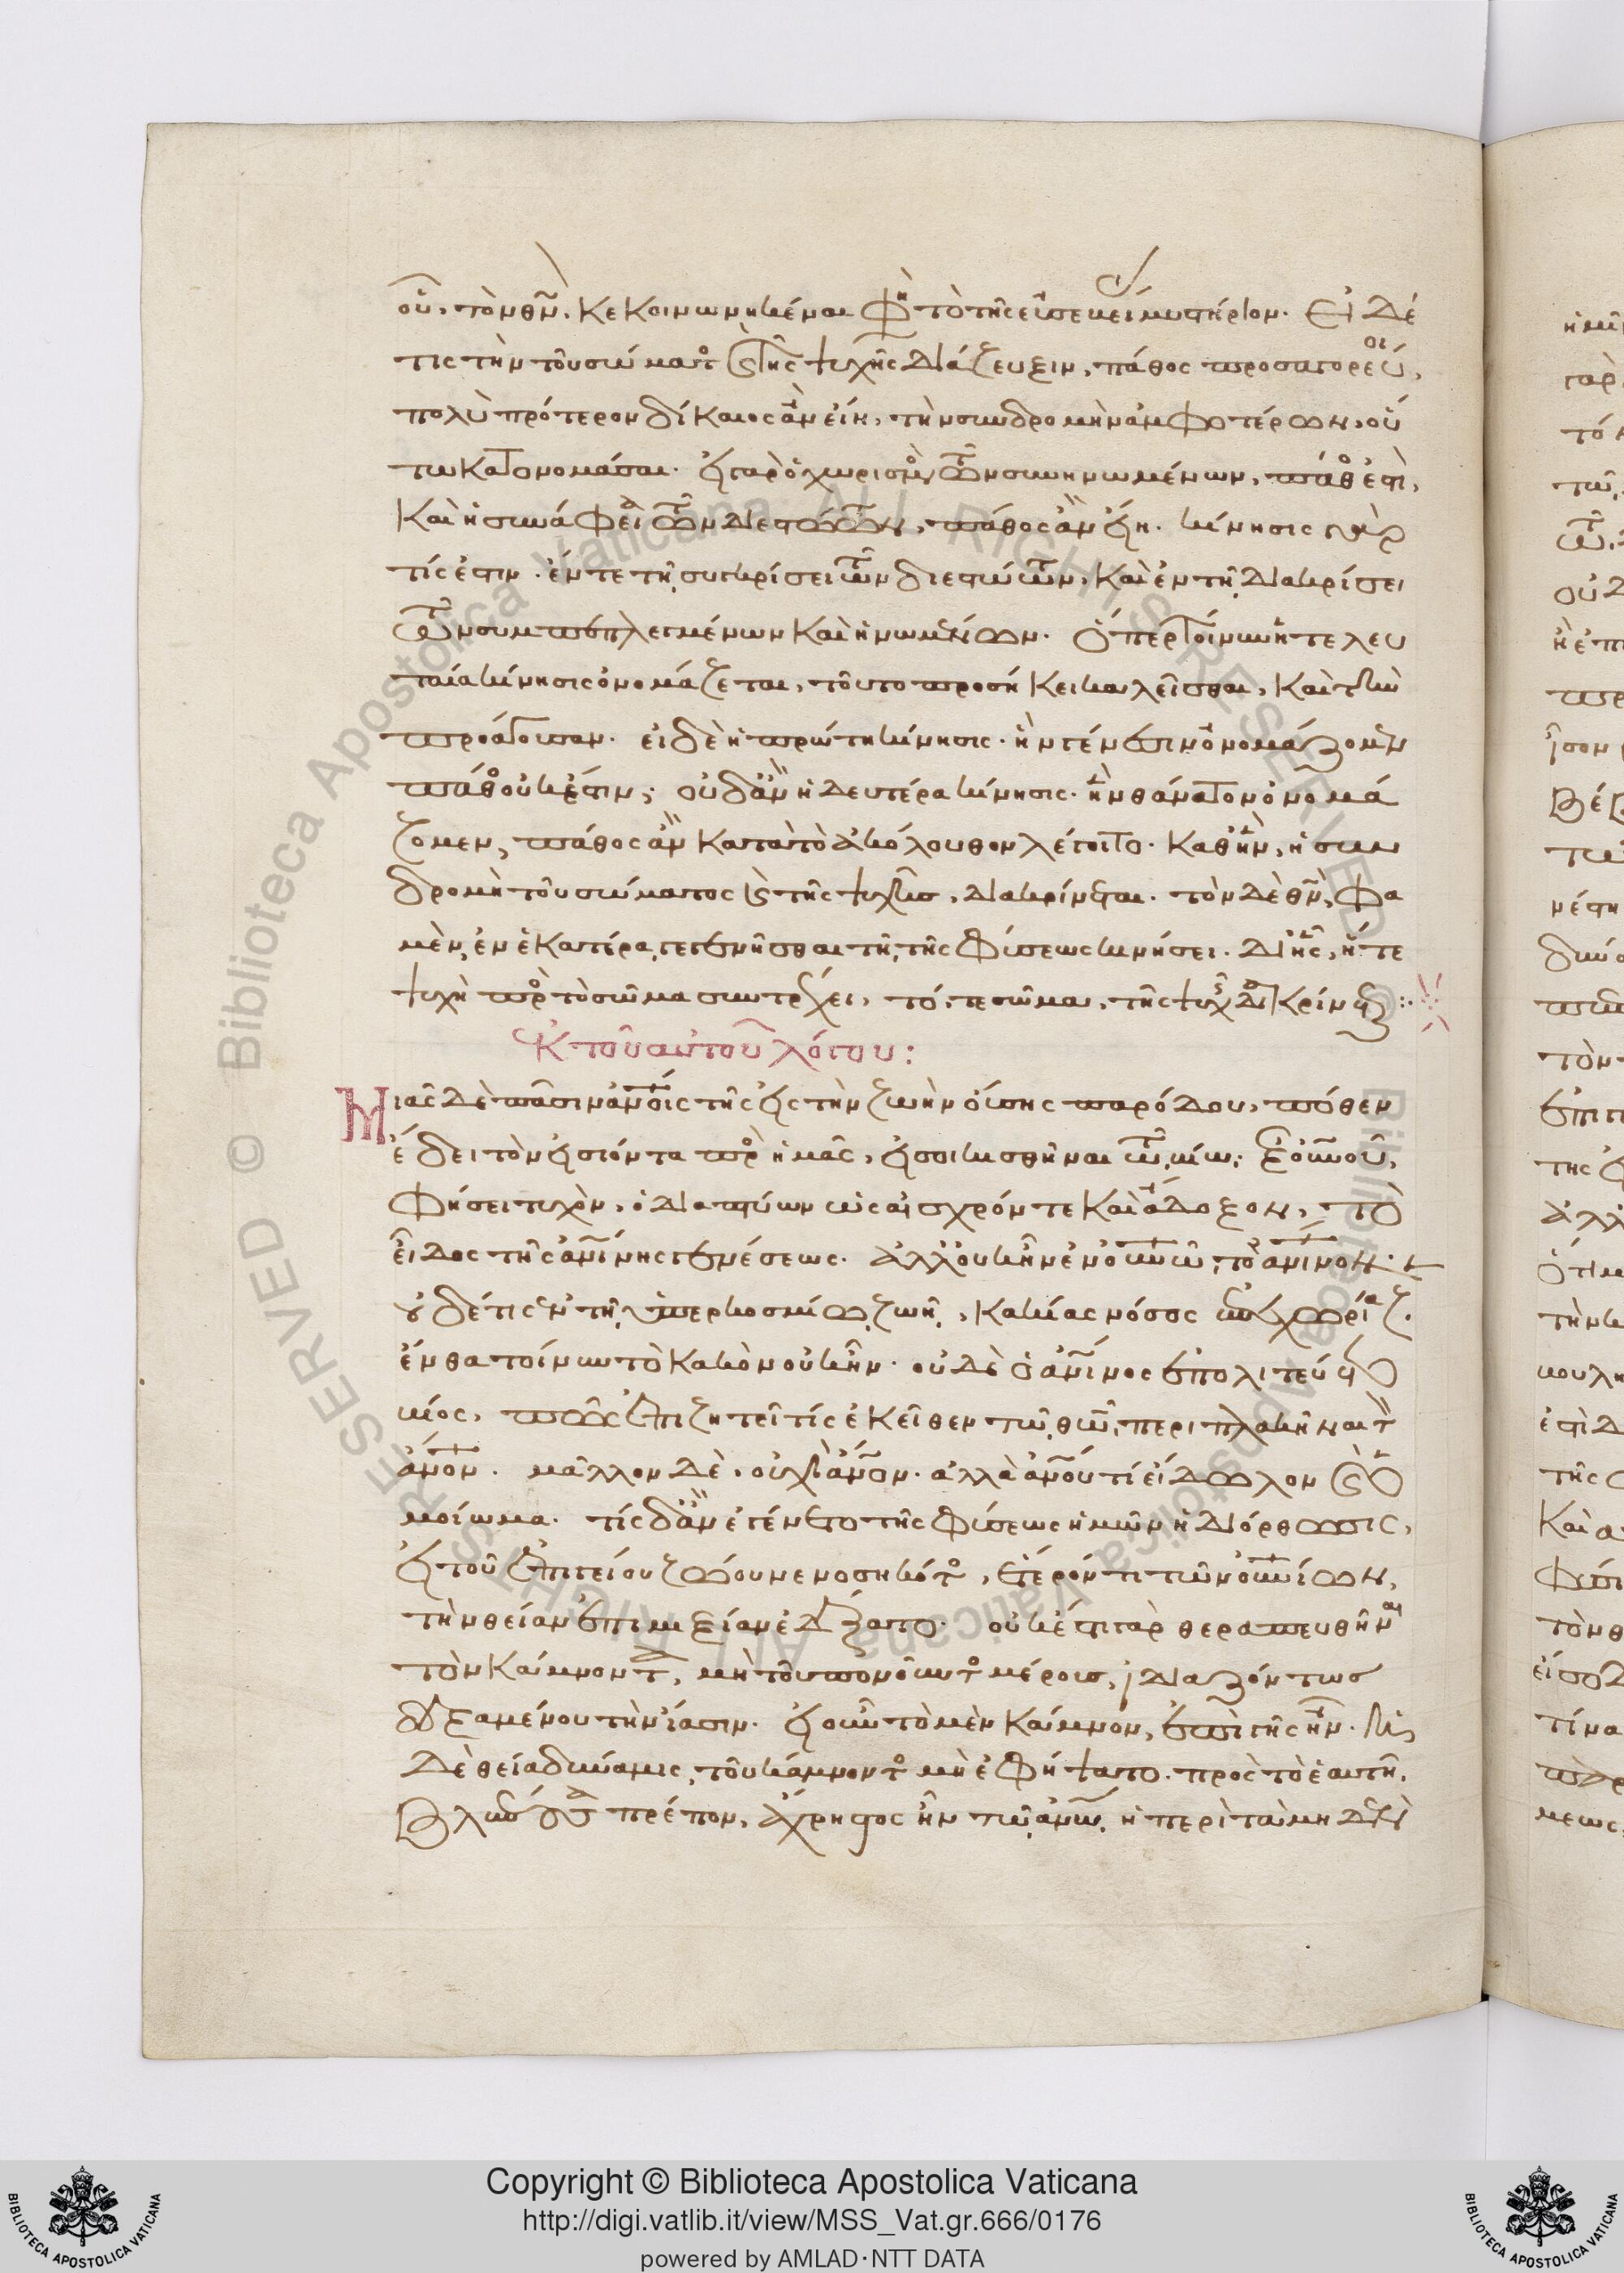 οὖν τὸν θν̅ κεκοινωνηκέναι φησὶ τὸ τῆς εὐσεβείας μυστήριον. Εἰ δέ
τις τὴν τοῦ σώματος καὶ τῆς ψυχῆς διάζευξιν, πάθος προσαγορεύοι,
πολὺ πρότερον δίκαιος ἂν εἴη, τὴν συνδρομὴν ἀμφοτέρων, οὕ
τω κατονομάσαι. εἰ γὰρ ὁ χωρισμὸς τῶν συνηνωμένων, πάθος ἐστὶ,
καὶ ἡ συνάφεια τῶν διεστώτων, πάθος ἂν εἴη. κίνησις γάρ
τίς ἐστιν. ἔν τε τῇ συγκρίσει τῶν διεστώτων, καὶ ἐν τῇ διακρίσει
τῶν συμπεπλεγμένων καὶ ἡνωμένων. Ὅπερ τοίνυν ἡ τελευ
ταία κίνησις ὀνομάζεται, τοῦτο προσήκει καλεῖσθαι, καὶ τὴν
προάγουσαν. εἰ δὲ ἡ πρώτη κίνησις. ἣν γένεσιν ὀνομάζομεν
πάθος οὐκ ἔστιν; οὐδ' ἂν ἡ δευτέρα κίνησις. ἣν θάνατον ὀνομά
ζομεν, πάθος ἂν κατὰ τὸ ἀκόλουθον λέγοιτο. καθ' ἣν, ἡ συν
δρομὴ τοῦ σώματος καὶ τῆς ψυχῆς, διακρίνεται. τὸν δὲ θν̅, φα
μὲν, ἐν ἑκατέρᾳ γεγενῆσθαι τῇ τῆς φύσεως κινήσει. δι' ἧς, ἥ τε
ψυχὴ πρὸς τὸ σῶμα συντρέχει, τό, τε σῶμα, τῆς ψυχῆς διακρίνεται:
Ἐκ τοῦ αὐτοῦ λόγου:
Μιᾶς δὲ πᾶσιν ἀνοις τῆς εἰς τὴν ζωὴν οὔσης παρόδου, πόθεν
ἔδει τὸν εἰσιόντα πρὸς ἡμᾶς, εἰσοικισθῆναι τῷ βίῳ; Ἐξ οὐνοῦ,
φήσει τυχὸν, ὁ διαπτύων ὡς αἰσχρόν τε καὶ ἄδοξον, τὸ
εἶδος τῆς ἀνίνης γενέσεως. ἀλλ' οὐκ ἦν ἐν οὐνῷ, τὸ ἄνινον.
οὐδέ τις ἐν τῇ ὑπερκοσμίῳ ζωῇ, κακίας νόσος ἐπεχωρίαζεν.
ἔνθα τοίνυν τὸ κακὸν οὐκ ἦν. οὐδὲ ὁ ἀνινος ἐπολιτεύετο
βίος, πῶς ἐπιζητεῖ τίς ἐκεῖθεν τῷ θω̅, περιπλακῆναι τὸν
ἄνον. μᾶλλον δὲ, οὐχὶ ἄνον. ἀλλὰ ἀνου τί εἴδωλον καὶ ὁ
μοίωμα. τίς δ' ἂν ἐγένετο τῆς φύσεως ἡμῶν ἡ διόρθωσις,
εἰ τοῦ ἐπιγείου ζώου νενοσηκότος, ἕτερόν τι τῶν οὐνίων,
τὴν θείαν ἐπιμιξίαν ἐδέξατο. οὐκ ἔστι γὰρ θεραπευθῆναι
τὸν κάμνοντα, μὴ τοῦ πονοῦντος μέρους, ἰδιαζόντως
δεξαμένου τὴν ἴασιν. εἰ οὖν τὸ μὲν κάμνον, ἐπὶ γῆς ἦν. ἡ
δὲ θεία δύναμις, τοῦ κάμνοντος μὴ ἐφήψατο. πρὸς τὸ ἑαυτῆ
βλέπουσα πρέπον, ἄχρηστος ἦν τῷ ἀνω. ἡ περὶ τὰ μηδὲν